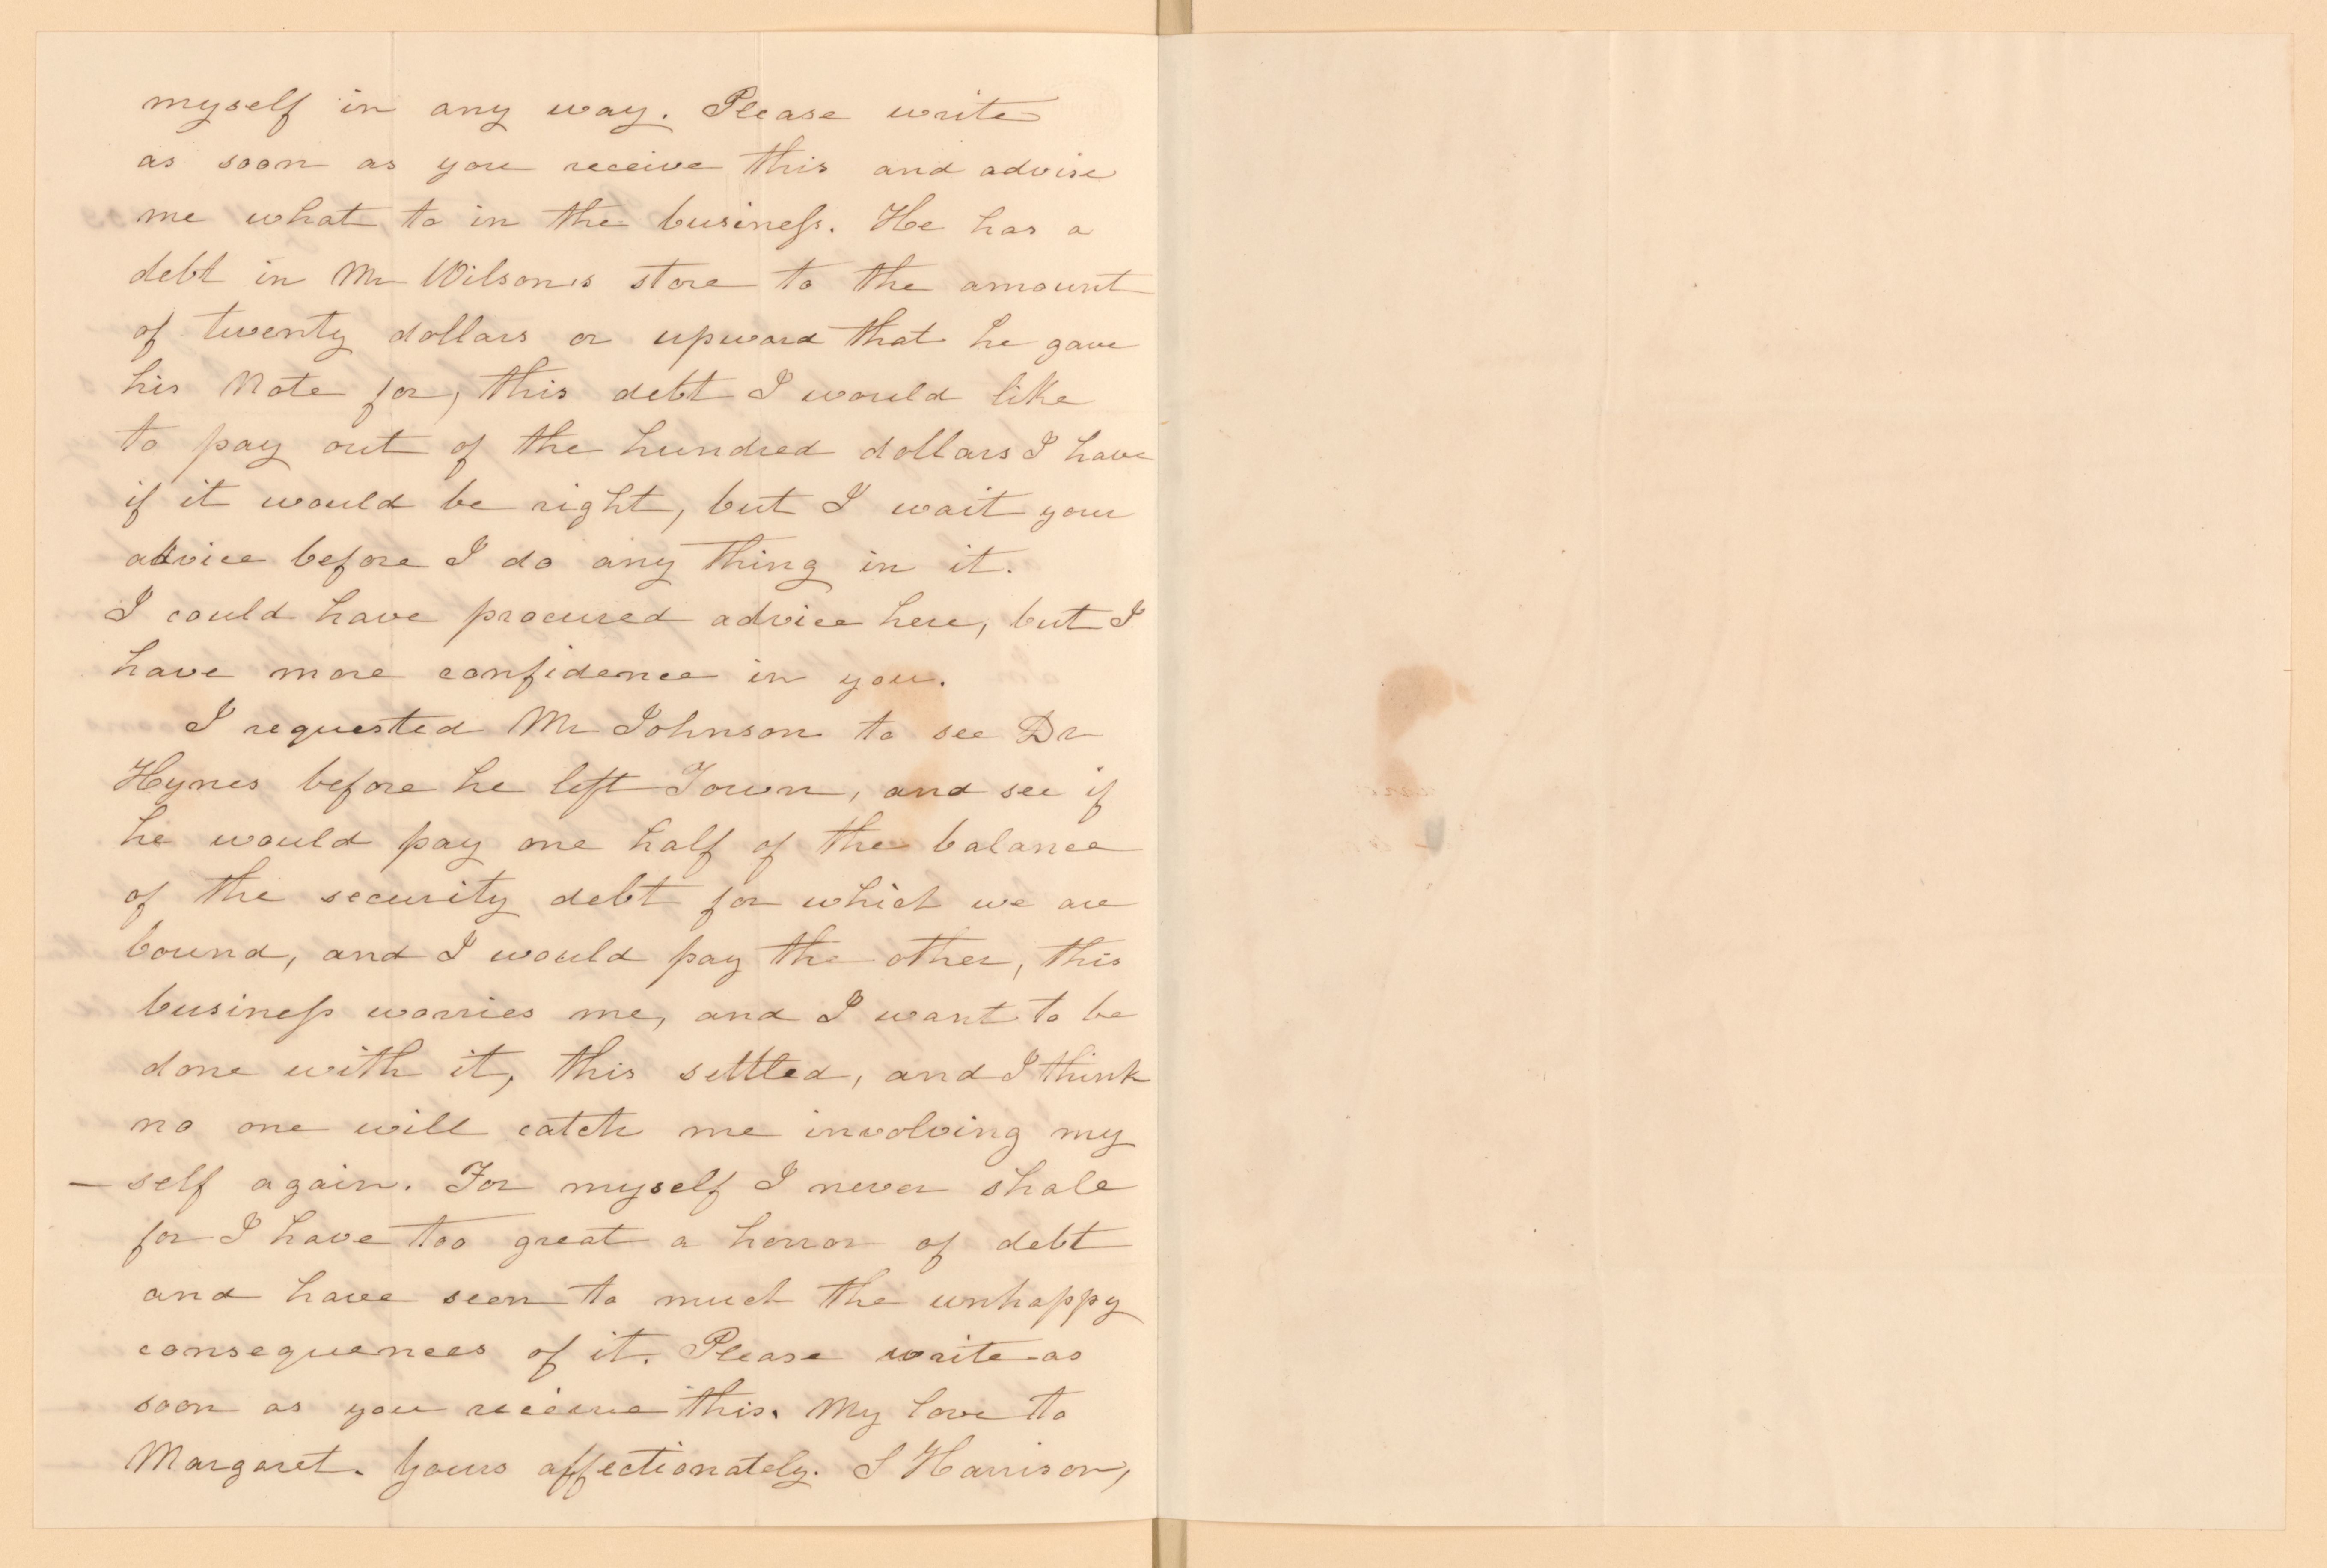 myself in any way. Please write
as soon as you receive this and advise
me what to in the business. He has a
debt in Mr Wilsons store to the amount
of twenty dollars or upward that he gave
his Note for, this debt I would like
to pay out of the hundred dollars I have
if it would be right, but I wait your
advice before I do any thing in it.
I could have procured advice here, but I
have more confidence in you.
I requested Mr Johnson to see Dr
Hynes before he left Town, and see if
he would pay one half of the balance
of the security debt for which we are
bound, and I would pay the other, this
business worries me, and I want to be
done with it, this settled, and I think
no one will catch me involving my
- self again. For myself I never shall
for I have too great a horror of debt
and have seen to much the unhappy
consequences of it. Please write as
soon as you receive this. My love to
Margaret. Yours affectionately. S Harrison,